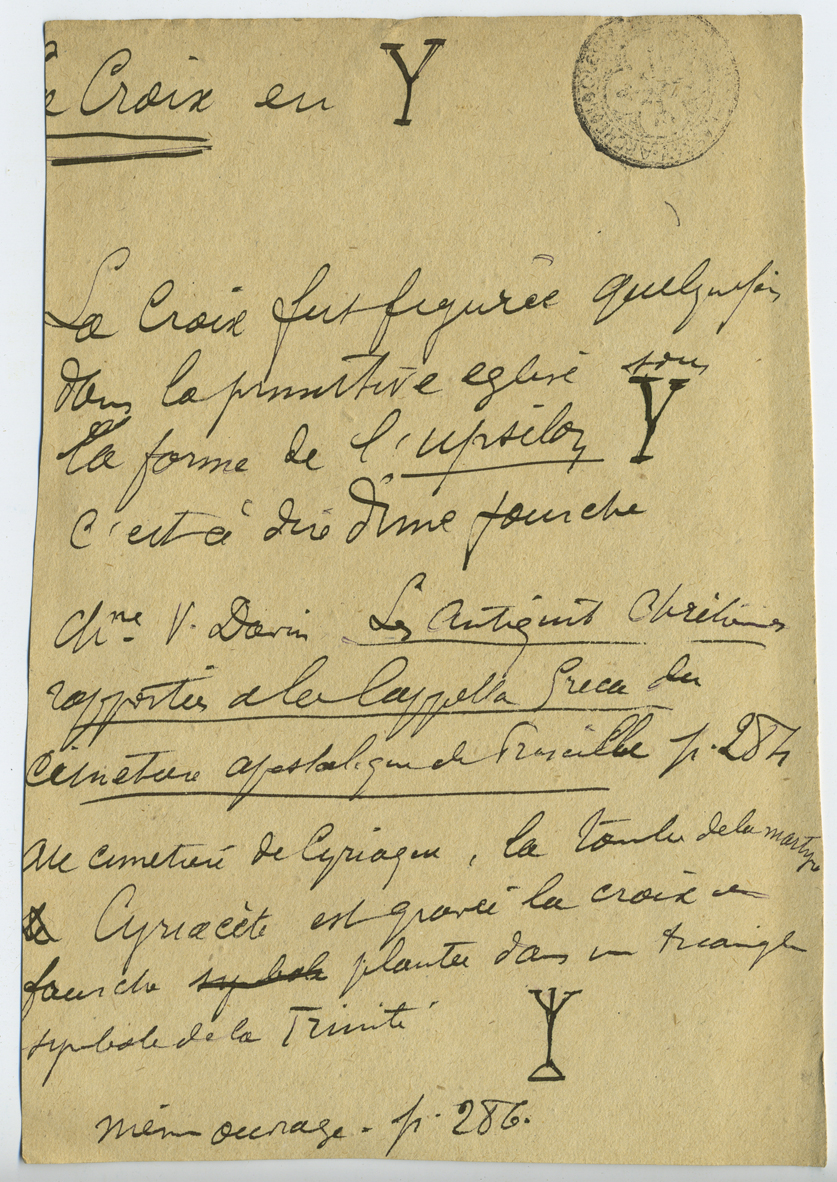 Croix en Y
La Croix fut figurée quelquefois
dans la primitive eglise sous
la forme de l'upsilon Y
c'est à dire d'une fourche
Chne. V. Davin Les Antiquités Chrétiennes
rapportées a la Cappella Greca du
cimetiere apostolique de Priscille p. 284
Au cimetière de Cyriaque, la tombe de la martyre
Cyriacète est gravée la croix en
fourche symbole plantée dans un triangle
symbole de la Trinité
même ouvrage. p. 286.